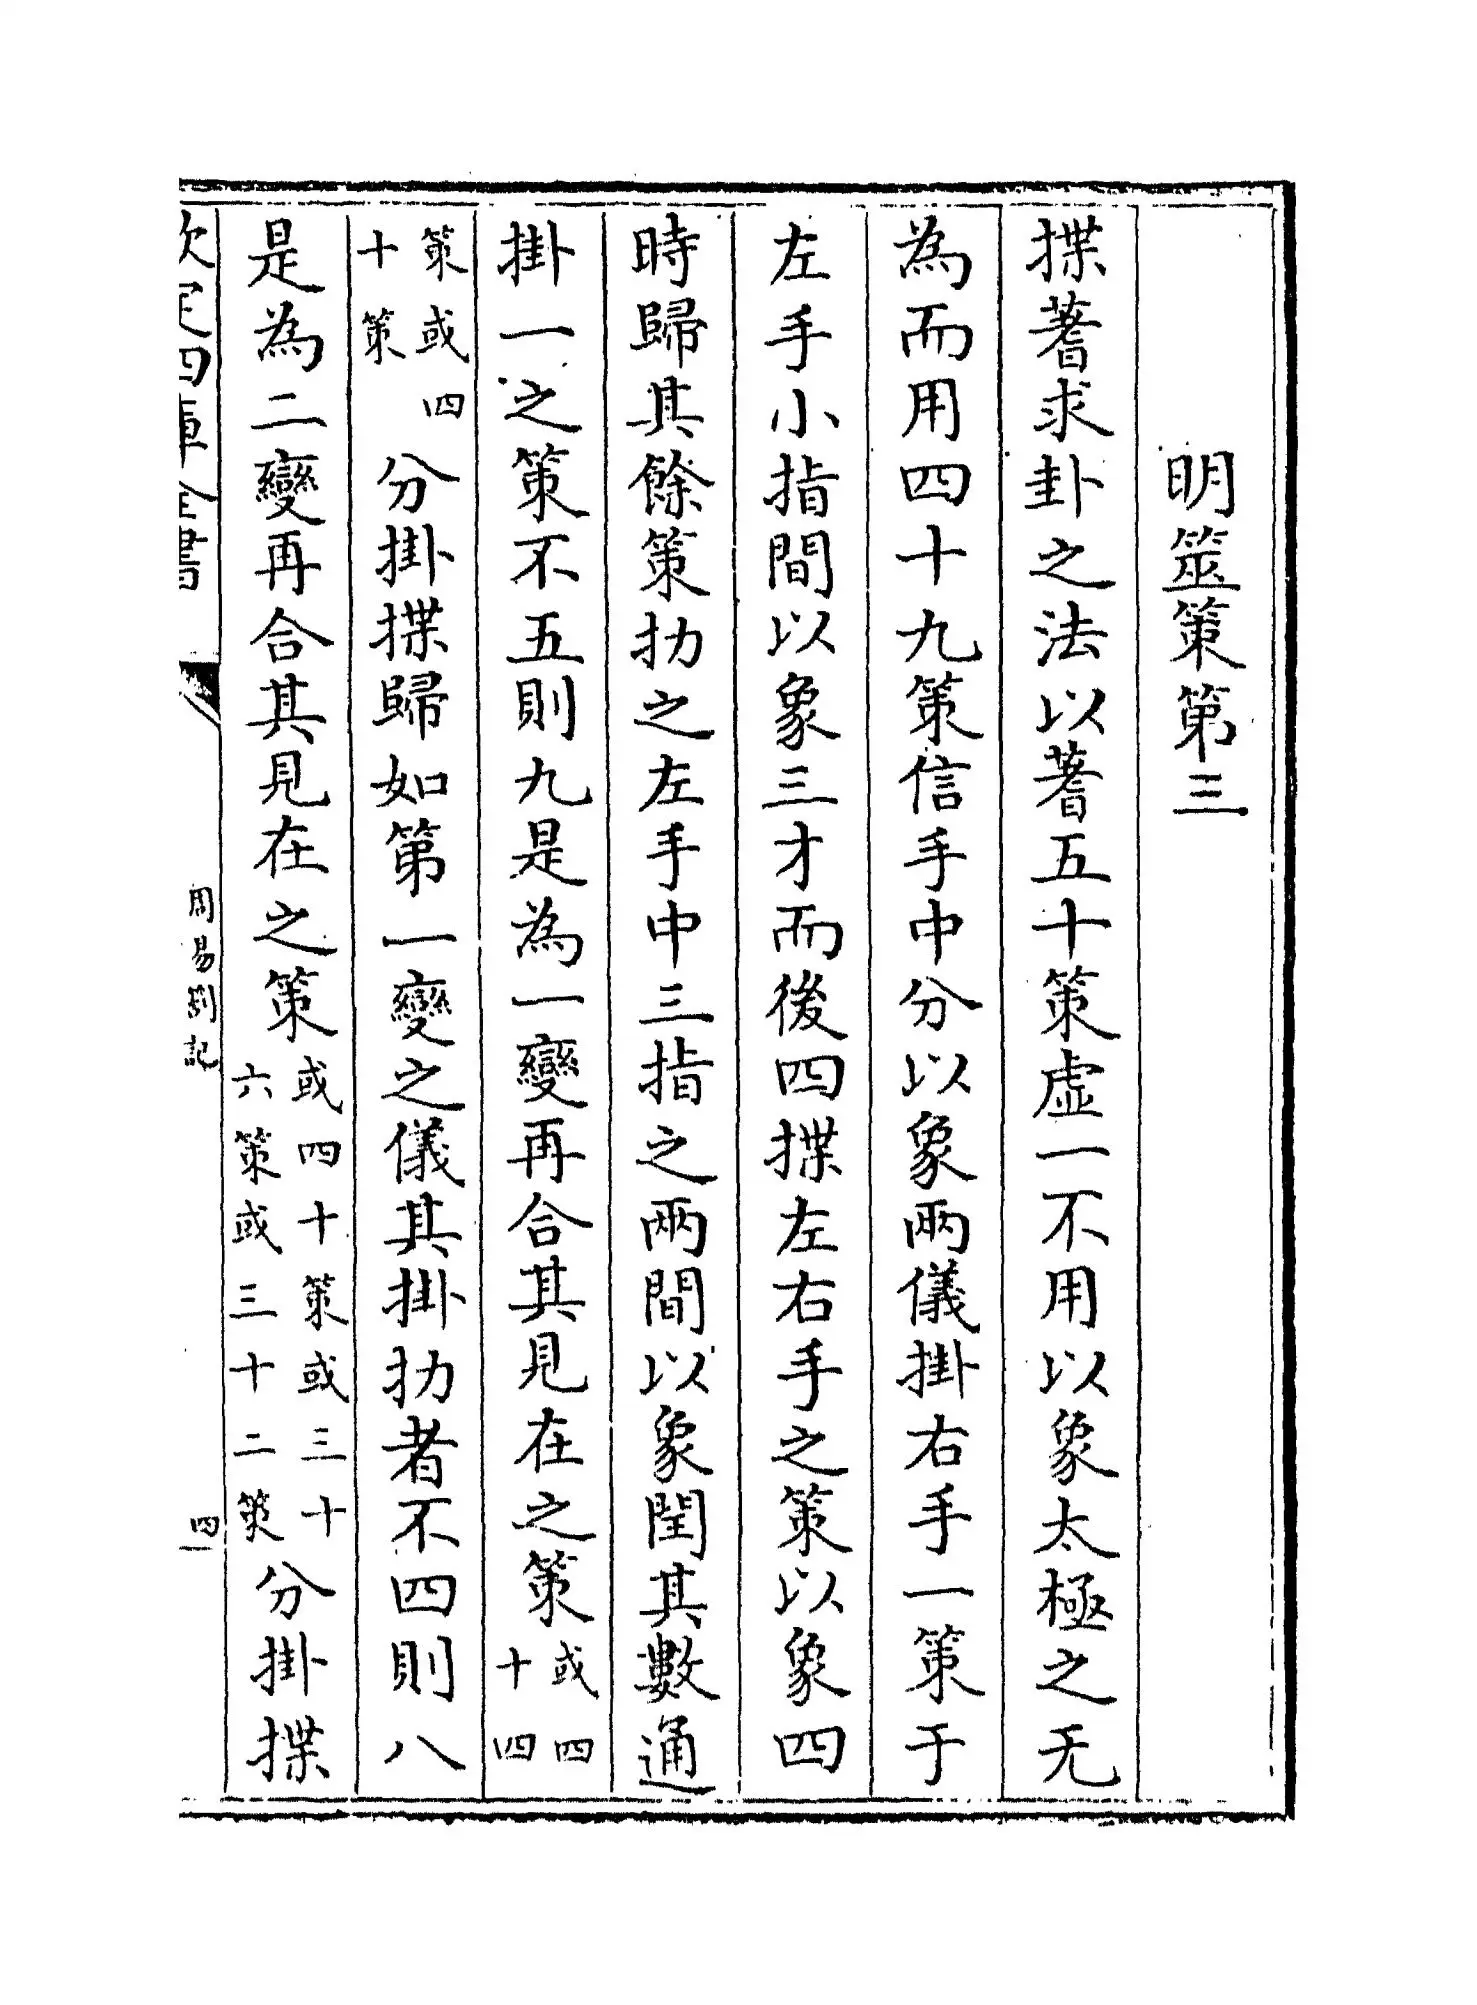 明筮策第三
揲蓍求卦之法以蓍五十策虛一不用以象太極之无
為而用四十九策信手中分以象兩儀掛右手一策于
左手小指間以象三才而後四揲左右手之策以象四
時歸其餘策扐之左手中三指之兩間以象閏其數通
掛一之策不五則九是為一變再合其見在之策或四十四
策或四十策分掛揲歸如第一變之儀其掛扐者不四則八
是為二變再合其見在之策或四十策或三十六策或三十二策分掛揲
欽定四庫全書
周易劄記
四